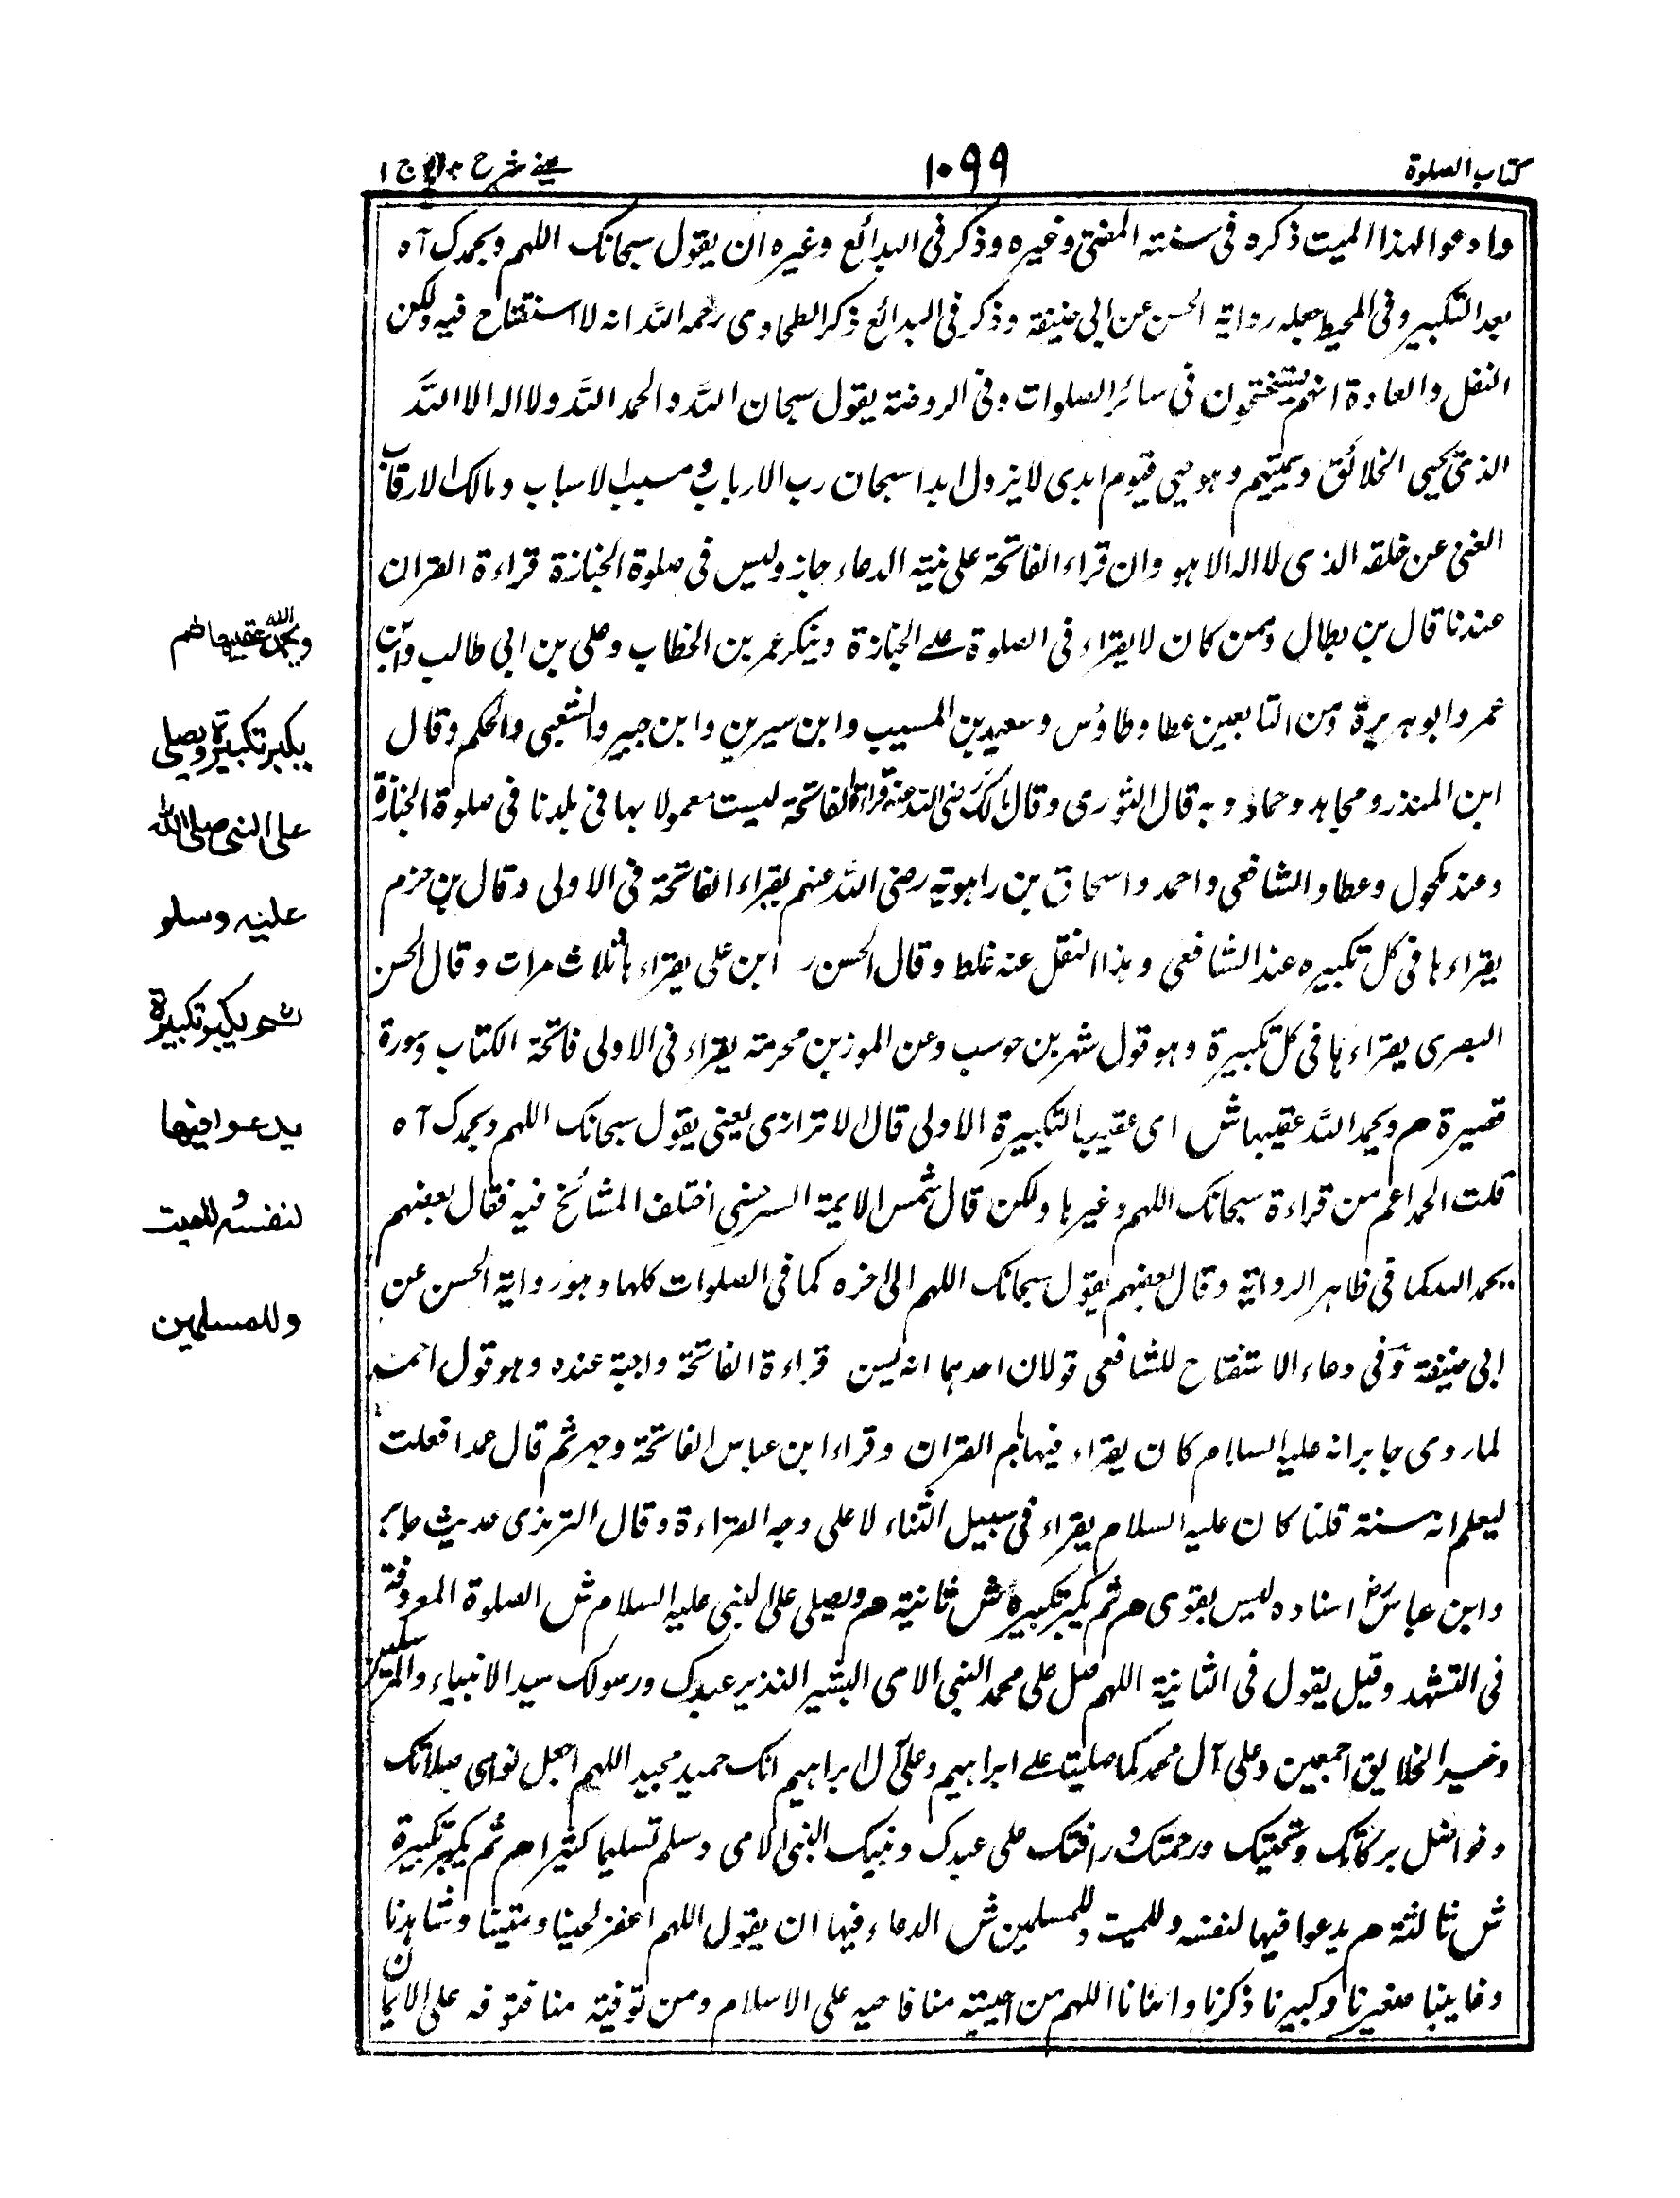 كتاب الصلوة
١٠٩٩
عينے شرح هدايه ج ١
وادعوا لهذا الميت ذكره فى سنته المفتى وغيره وذكر فى البدائع وغيره ان يقول سبحانك اللهم وبحمدك آه
بعد التكبير وفى المحيط جعله رواية الحسن عن ابى حنيفة وذكر فى البدائع ذكر الطحاوى رحمه الله انه لا استفتاح فيه ولكن
النقل والعادة انهم يستفتحون فى سائر الصلوات وفى الروضة يقول سبحان الله والحمد لله ولا اله الا الله
الذى يحيى الخلائق ويميتهم وهو حيى قيوم ابدى لا يزول ابدا سبحان رب الارباب ومسبب الاسباب ومالك الارقاب
الغنى عن خلقه الذى لا اله الا هو وان قراء الفاتحة على نية الدعاء جاز وليس فى صلوة الجنازة قراءة القران
عندنا قال بن بطال وممن كان لا يقراء فى الصلوة علے الجنازة وينكر عمر بن الخطاب وعلى بن ابى طالب وابن
عمر وابو هريرة ومن التابعين عطا وطاوس وسعيد بن المسيب وابن سيرين وابن جبير والشعبى والحكم وقال
ابن المنذر ومجاهد وحماد وبه قال الثورى وقال مالك رضى الله عنه قراءة الفاتحة ليست معمولا بها فى بلدنا فى صلوة الجنازة
وعند مكحول وعطا والشافعى واحمد واسحاق بن راهويه رضى الله عنهم يقراء الفاتحة فى الاولى وقال بن حزم
يقراءها فى كل تكبيره عند الشافعى وهذا النقل عنه غلط وقال الحسن ر ابن على يقراءها ثلاث مرات وقال الحسن
البصرى يقراءها فى كل تكبيرة وهو قول شهر بن حوسب وعن الموز بن محرمته يقراء فى الاولى فاتحة الكتاب وسورة
قصيرة هم ويحمد الله عقيبها ش اى عقيب التكبيرة الاولى قال الاترازى يعنى يقول سبحانك اللهم وبحمدك آه
قلت الحمد اعم من قراءة سبحانك اللهم وغيرها ولكن قال شمس الايمة السرخسى اختلف المشائخ فيه فقال بعضهم
يحمد الله كما فى ظاهر الرواية وقال بعضهم يقول سبحانك اللهم الى اخره كما فى الصلوات كلها وهو رواية الحسن عن
ابى حنيفة وفى دعاء الاستفتاح للشافعى قولان احدهما انه يسن قراءة الفاتحة واجبة عنده وهو قول احمد
لما روى جابر انه عليه السلام كان يقراء فيها بام القران وقراء ابن عباس الفاتحة وجهر ثم قال عمدا فعلت
ليعلم انه سنة قلنا كان عليه السلام يقراء فى سبيل الثناء لا على وجه القراءة وقال الترمذى حديث جابر
وابن عباس رض اسناده ليس بقوى هم ثم يكبر تكبيرة ش ثانية هم ويصلى على النبى عليه السلام ش الصلوة المعروفة
فى التشهد وقيل يقول فى الثانية اللهم صل على محمد النبى الامى البشير النذير عبدك ورسولك سيد الانبياء والمرسلين
وخير الخلايق اجمعين وعلى آل محمد كما صليت علے ابراهيم وعلى آل ابراهيم انك حميد مجيد اللهم اجعل نوامى صلاتك
وفواضل بركاتك وتحيتك ورحمتك ورافتك على عبدك ونبيك النبى الامى وسلم تسليما كثيرا هم ثم يكبر تكبيرة
ش ثالثة هم يدعوا فيها لنفسه وللميت وللمسلمين ش الدعاء فيها ان يقول اللهم اغفر لحينا وميتنا وشاهدنا
وغايبنا صغيرنا وكبيرنا ذكرنا وانثانا اللهم من احييته منا فاحيه على الاسلام ومن توفيته منا فتوفه على الايمان
ويحمد الله عقيبها ثم
يكبر تكبيرة ويصلى
على النبى صلى الله
عليه وسلو
ثم يكبر تكبيرة
يدعوا فيها
لنفسه وللميت
وللمسلمين